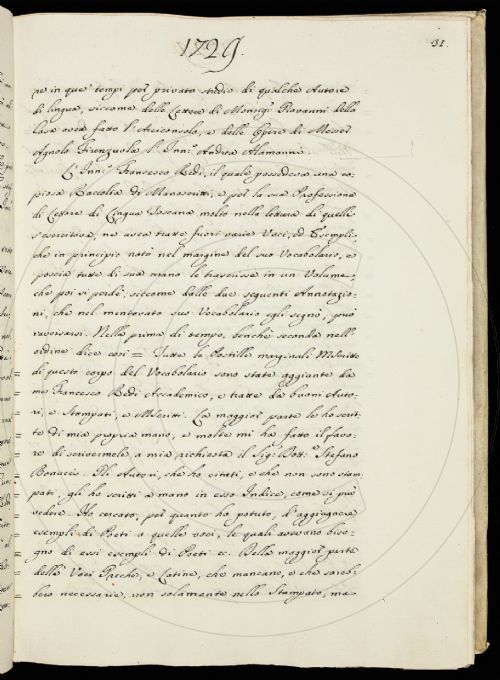 1729.
31.
re in que' tempi per privato studio di qualche Autore
di lingua, siccome delle Lettere di Monsigr. Giovanni della
Casa avea fatto l'Arciconsolo, e delle Opere di Messer
Agnolo Firenzuola l'Inn: Andrea Alamanni.
L'Inn: Francesco Redi, il quale possedeva una co-
piosa Raccolta di Manoscritti, e per la sua Professione
di Lettore di Lingua Toscana molto nella lettura di quelle
s'esercitava, ne avea tratte fuori varie Voci, ed Esempli,
che in principio notò nel margine del suo Vocabolario, e
poscia tutte di sua mano le trascrisse in un Volume,
che poi si perdè, siccome dalle due seguenti Annotazio-
ni, che nel mentovato suo Vocabolario egli segnò, può
ravvisarsi. Nella prima di tempo, benchè seconda nell'
ordine dice così = Tutte le Postille marginali MSSritte
= di questo corpo del Vocabolario sono state aggiunte da
= me Francesco Redi Accademico, e tratte da buoni Auto-
= ri, e Stampati, e MScritti. La maggior parte le ho scrit-
= te di mia propria mano, e molte mi ha fatto il favo-
= re di scrivermele a mia richiesta il Sig: Dott: Stefano
= Bonucci. Gli Autori, che ho citati, e che non sono stam-
= pati, gli ho scritti a mano in esso Indice, come si può
= vedere. Ho cercato, per quanto ho potuto, d'aggiugnere
= esempli di Poeti a quelle voci, le quali avevano biso-
= gno di essi esempli di Poeti &c. Della maggior parte
= delle Voci Greche, e Latine, che mancano, e che sareb-
= bero necessarie, non solamente nello Stampato, ma